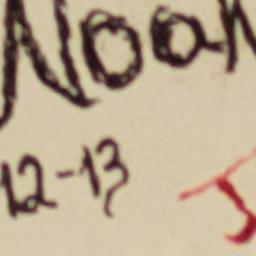 Noah
12-13
J